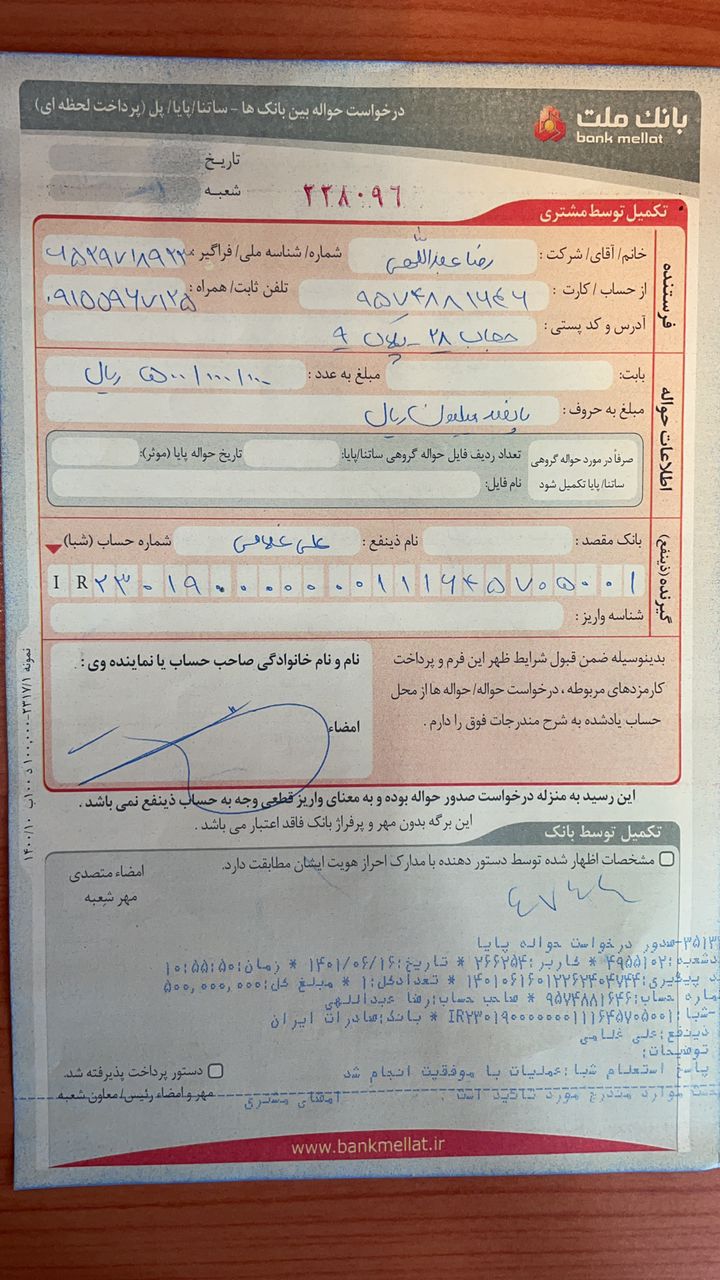 بانك ملت
bank mellat
درخواست حواله بین بانک ها - ساتنا/پایا/پل (پرداخت لحظه ای)
تاریخ
شعبه
۲۲۸۰۹۶
تکمیل توسط مشتری
فرستنده
خانم/آقای/شرکت: رضا عبداللهی شماره/شناسه ملی/فراگیر:
از حساب/کارت: ۹۵۷۴۸۸۱۶۴۶ تلفن ثابت/همراه: ۰۹۱۵۵۹۶۷۱۲۵
آدرس و کد پستی: حجاب ۲۸ - پلاک ۹
اطلاعات حواله
بابت: مبلغ به عدد: ۵۰۰/۰۰۰/۰۰۰ ریال
مبلغ به حروف: پانصد میلیون ریال
صرفاً در مورد حواله گروهی ساتنا/پایا تکمیل شود
تعداد ردیف فایل حواله گروهی ساتنا/پایا: تاریخ حواله پایا (موثر):
نام فایل:
گیرنده (ذینفع)
بانک مقصد: نام ذینفع: علی غلامی شماره حساب (شبا)
IR۲۳۰۱۹۰۰۰۰۰۰۰۱۱۱۶۴۵۷۰۵۰۰۱
شناسه واریز:
بدینوسیله ضمن قبول شرایط ظهر این فرم و پرداخت
کارمزدهای مربوطه، درخواست حواله/حواله ها از محل
حساب یادشده به شرح مندرجات فوق را دارم.
نام و نام خانوادگی صاحب حساب یا نماینده وی:
امضاء
این رسید به منزله درخواست صدور حواله بوده و به معنای واریز قطعی وجه به حساب ذینفع نمی باشد.
این برگه بدون مهر و پرفراژ بانک فاقد اعتبار می باشد.
تکمیل توسط بانک
مشخصات اظهار شده توسط دستور دهنده با مدارک احراز هویت ایشان مطابقت دارد.
امضاء متصدی
مهر شعبه
صدور درخواست حواله پایا
کاربر:۲۶۶۲۵۴ * تاریخ:۱۴۰۱/۰۶/۱۶ * زمان:۱۰:۵۵:۵۰
پیگیری:۱۴۰۱۰۶۱۶۰۱۲۲۶۲۴۰۴۷۴۴ * تعدادکل:۱ * مبلغ کل:۵۰۰,۰۰۰,۰۰۰
حساب:۹۵۷۴۸۸۱۶۴۶ * صاحب حساب:رضا عبداللهی
شبا:IR۲۳۰۱۹۰۰۰۰۰۰۰۱۱۱۶۴۵۷۰۵۰۰۱ * بانک:صادرات ایران
ذینفع:علی غلامی
توضیحات:
پاسخ استعلام شبا:عملیات با موفقیت انجام شد
موارد مندرج مورد تائید است. امضای مشتری
دستور پرداخت پذیرفته شد.
مهر و امضاء رئیس/معاون شعبه
www.bankmellat.ir